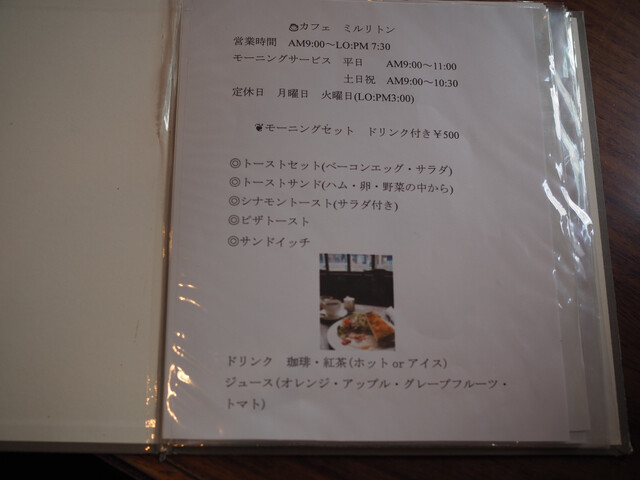 カフェ ミルリトン
営業時間 AM9:00～LO:PM 7:30
モーニングサービス 平日 AM9:00～11:00
土日祝 AM9:00～10:30
定休日 月曜日 火曜日(LO:PM3:00)
❦モーニングセット ドリンク付き￥500
◎トーストセット(ベーコンエッグ・サラダ)
◎トーストサンド(ハム・卵・野菜の中から)
◎シナモントースト(サラダ付き)
◎ピザトースト
◎サンドイッチ
ドリンク 珈琲・紅茶(ホット or アイス)
ジュース(オレンジ・アップル・グレープフルーツ・
トマト)